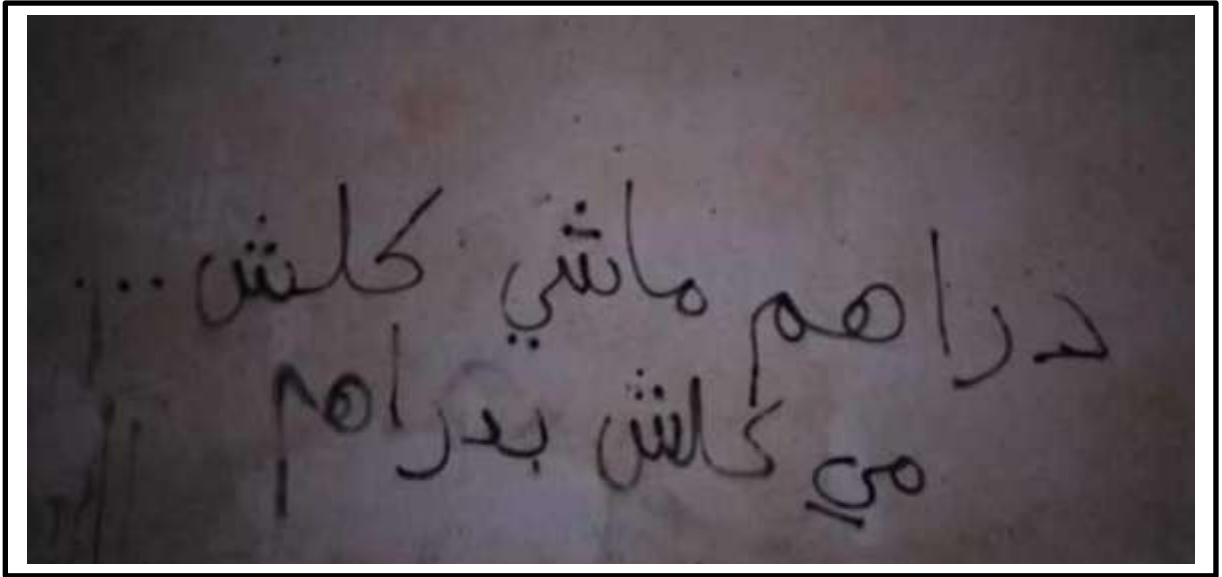 دراهم ماشي كلش...
مي كلش بدراهم